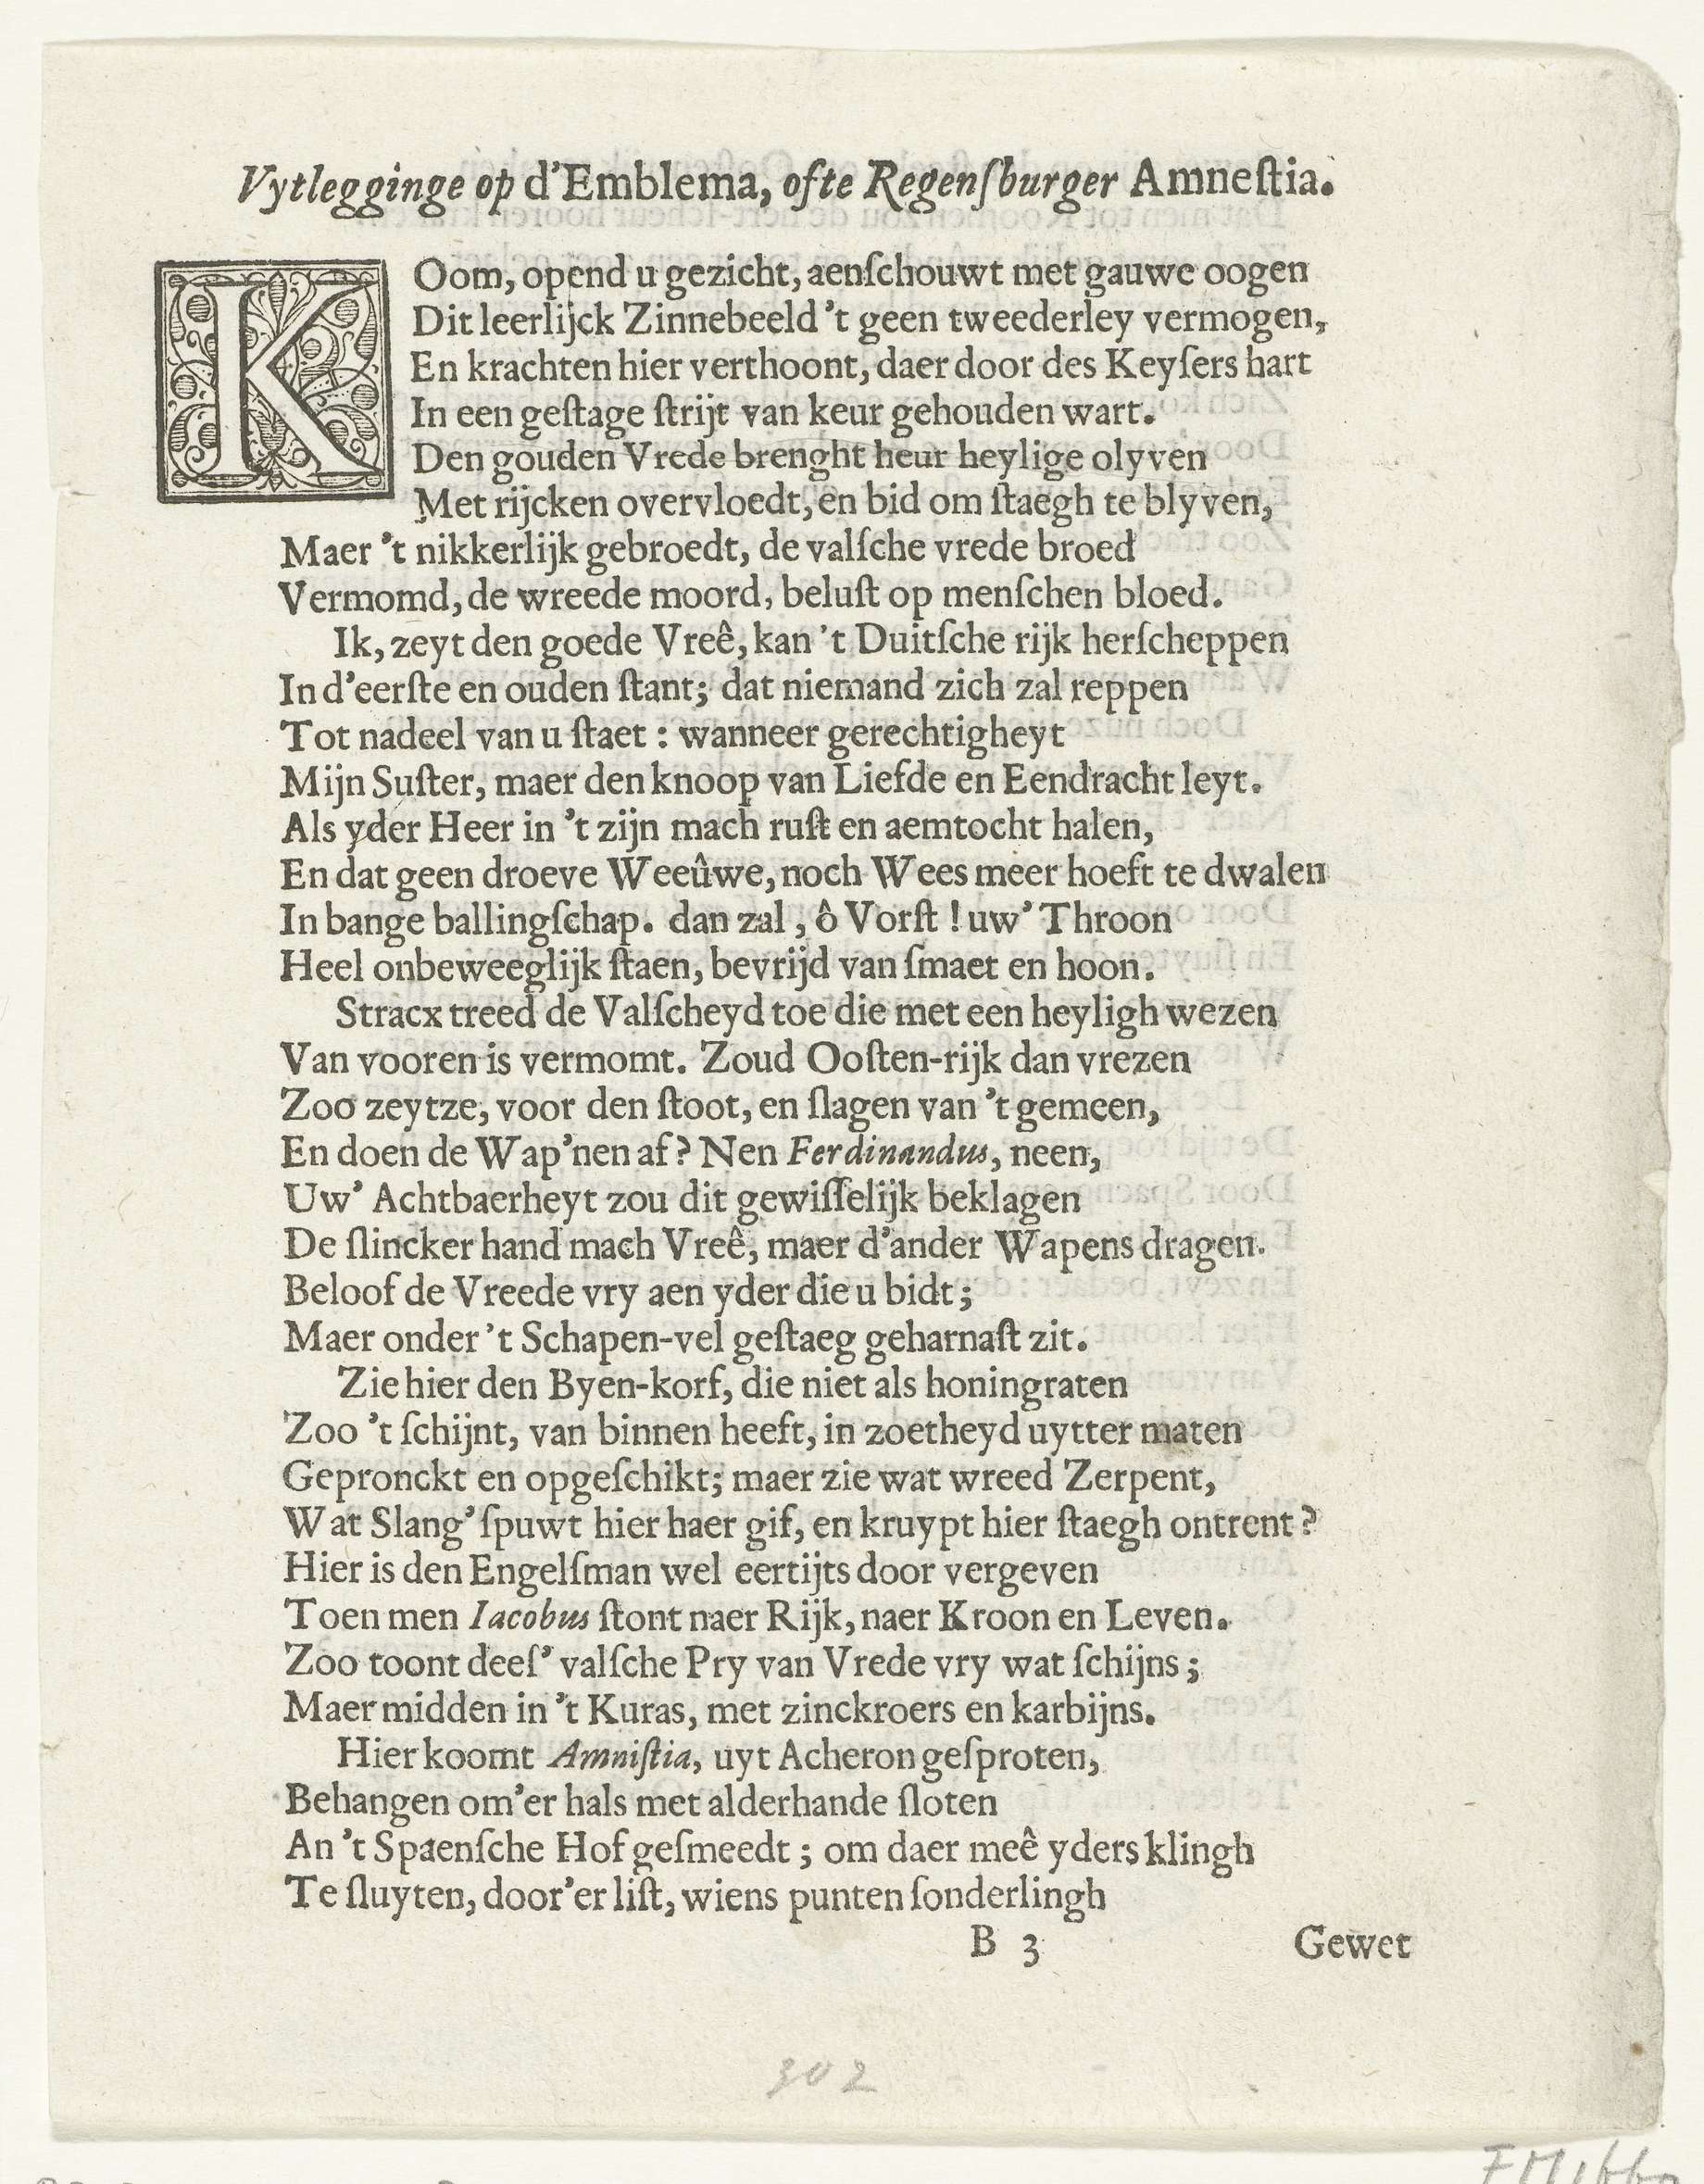 Vytlegginge op d'Emblema, ofte Regenſburger Amneſtia.
KOom, opend u gezicht, aenſchouwt met gauwe oogen
Dit leerlijck Zinnebeeld 't geen tweederley vermogen,
En krachten hier verthoont, daer door des Keyſers hart
In een geſtage ſtrijt van keur gehouden wart.
Den gouden Vrede brenght heur heylige olyven
Met rijcken overvloedt, en bid om ſtaegh te blyven,
Maer 't nikkerlijk gebroedt, de valſche vrede broed
Vermomd, de wreede moord, beluſt op menſchen bloed.
Ik, zeyt den goede Vreê, kan 't Duitſche rijk herſcheppen
In d'eerſte en ouden ſtant; dat niemand zich zal reppen
Tot nadeel van u ſtaet : wanneer gerechtigheyt
Mijn Suſter, maer den knoop van Liefde en Eendracht leyt.
Als yder Heer in 't zijn mach ruſt en aemtocht halen,
En dat geen droeve Weeûwe, noch Wees meer hoeft te dwalen
In bange ballingſchap. dan zal, ô Vorſt ! uw' Throon
Heel onbeweeglijk ſtaen, bevrijd van ſmaet en hoon.
Stracx treed de Valſcheyd toe die met een heyligh wezen
Van vooren is vermomt. Zoud Ooſten-rijk dan vrezen
Zoo zeytze, voor den ſtoot, en ſlagen van 't gemeen,
En doen de Wap'nen af? Nen Ferdinandus, neen,
Uw' Achtbaerheyt zou dit gewiſſelijk beklagen
De ſlincker hand mach Vreê, maer d'ander Wapens dragen.
Beloof de Vreede vry aen yder die u bidt;
Maer onder 't Schapen-vel geſtaeg geharnaſt zit.
Zie hier den Byen-korf, die niet als honingraten
Zoo 't ſchijnt, van binnen heeft, in zoetheyd uytter maten
Gepronckt en opgeſchikt; maer zie wat wreed Zerpent,
Wat Slang' ſpuwt hier haer gif, en kruypt hier ſtaegh ontrent?
Hier is den Engelſman wel eertijts door vergeven
Toen men Iacobus ſtont naer Rijk, naer Kroon en Leven.
Zoo toont deeſ' valſche Pry van Vrede vry wat ſchijns;
Maer midden in 't Kuras, met zinckroers en karbijns.
Hier koomt Amniſtia, uyt Acheron geſproten,
Behangen om'er hals met alderhande ſloten
An 't Spaenſche Hof geſmeedt; om daer meê yders klingh
Te ſluyten, door'er liſt, wiens punten ſonderlingh
B 3 Gewet
302